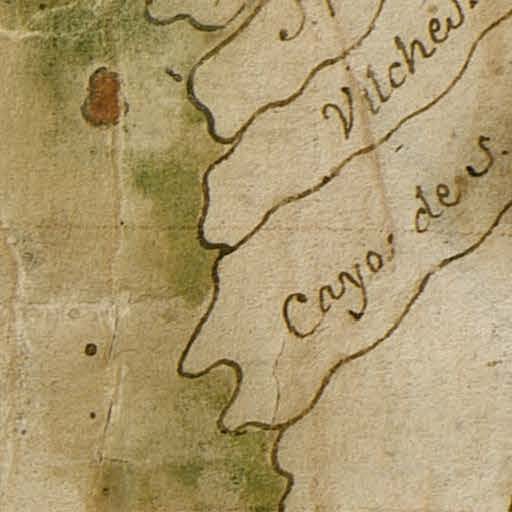 Vilches.
Cayo: de S.